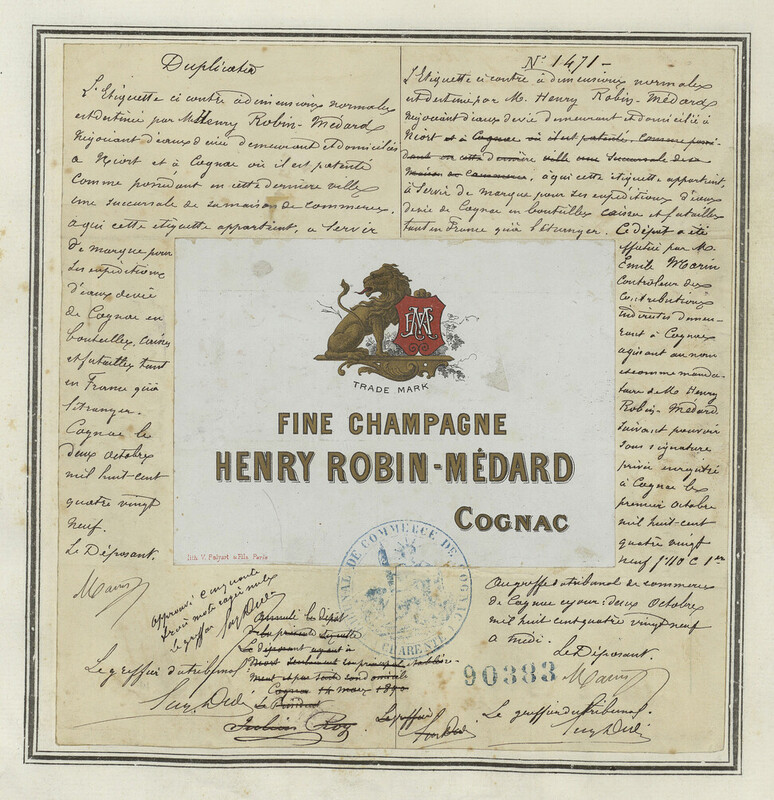 Duplicata
L'Etiquette ci contre à dimensions normales
est destinée par M. Henry Robin-Médard
Négociant d'eaux de vie demeurant et domicilié
à Niort et à Cognac où il est patenté
comme possédant en cette dernière ville
une succursale de sa maison de commerce,
à qui cette étiquette appartient, à servir
de marque pour
ses expéditions
d'eaux de vie
de Cognac en
bouteilles, caisses
et futailles tant
en France qu'à
l'étranger.
Cognac le
deux octobre
mil huit-cent
quatre vingt
neuf.
Le Déposant.
Marin
Approuvé cinquante
trois mots rayés nuls
Le greffier
Le greffier du tribunal
N° 1471-
L'Etiquette ci contre à dimensions normales
est destinée par M. Henry Robin-Médard
Négociant d'eaux de vie demeurant et domicilié à
Niort et à Cognac où il est patenté, comme possé-
dant en cette dernière ville une succursale de sa
Maison de Commerce, à qui cette étiquette appartient,
à servir de marque pour ses expéditions d'eaux
de vie de Cognac en bouteilles caisses et futailles
tant en France qu'à l'étranger. Ce dépôt a été
effectué par M.
Emile Marin
Contrôleur des
Contributions
indirectes demeu-
rant à Cognac
agissant au nom
et comme manda-
taire de M. Henry
Robin-Médard
suivant pouvoir
sous signature
privée enregistré
à Cognac le
premier octobre
mil huit-cent
quatre vingt
neuf f° 110 C 1er
Au greffe du tribunal de commerce
de Cognac ce jour deux Octobre
mil huit cent quatre vingt neuf
à midi.
Le Déposant.
Marin
Le greffier du Tribunal.
TRADE MARK
FINE CHAMPAGNE
HENRY ROBIN-MÉDARD
COGNAC
Lith. V. Palyart & Fils, Paris
TRIBUNAL DE COMMERCE DE COGNAC
CHARENTE
Annulé le dépôt
Le déposant ayant à
Niort seulement son principal établisse-
ment et par suite son domicile
Cognac 14 mars 1890
Le Président
Julien Roy
Le greffier
90383